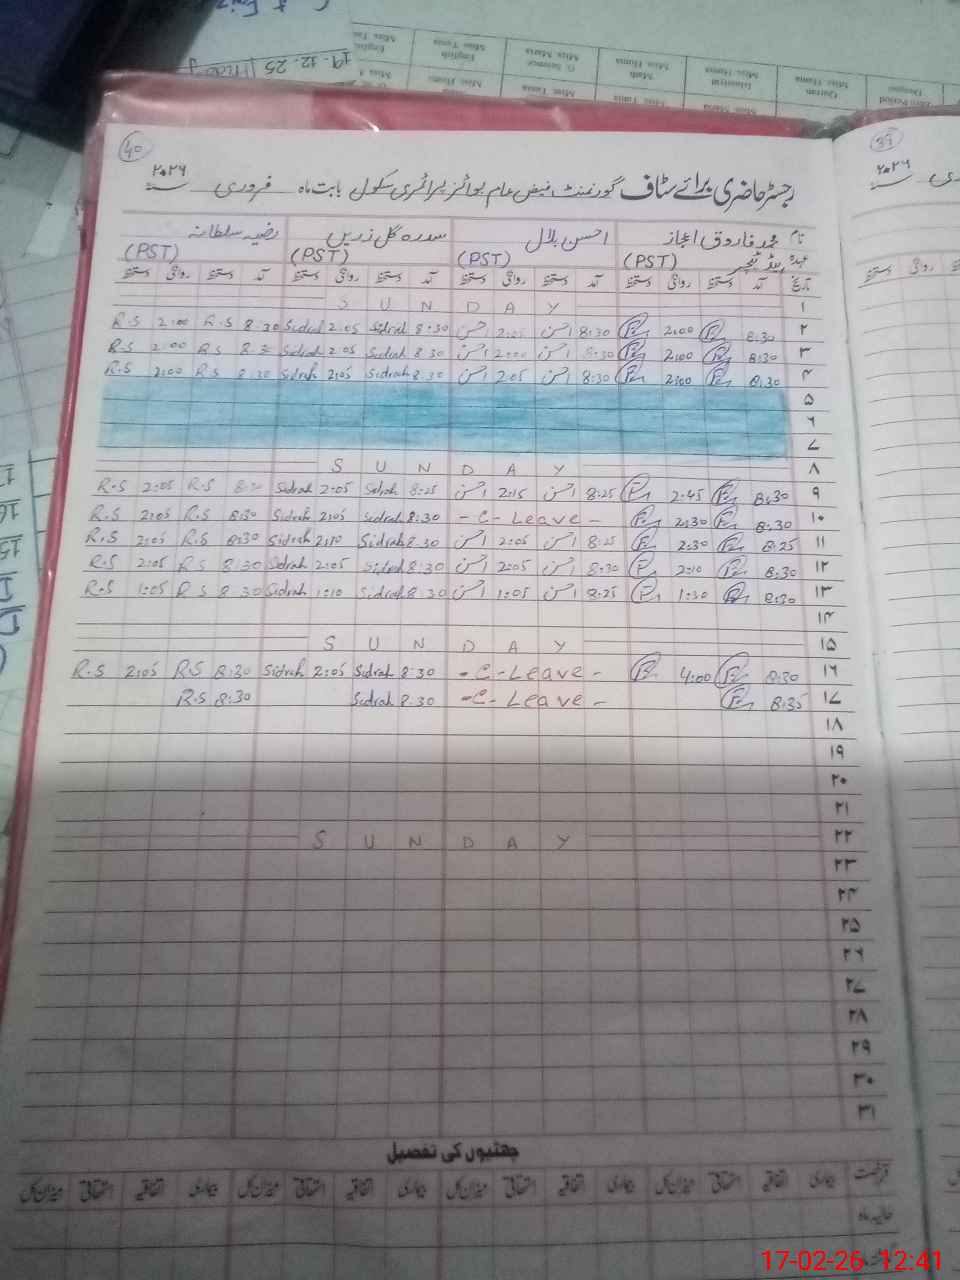 40
رجسٹر حاضری برائے سٹاف گورنمنٹ فیض عام بوائز پرائمری سکول بابت ماہ فروری ۲۰۲۶
نام محمد فاروق اعجاز احسن بلال سدرہ گل زریں رضیہ سلطانہ
عہدہ ہیڈ ٹیچر (PST) (PST) (PST) (PST)
تاریخ آمد دستخط روانگی دستخط آمد دستخط روانگی دستخط آمد دستخط روانگی دستخط آمد دستخط روانگی دستخط
۱ SUNDAY
۲ 8:30 2:00 8:30 احسن 2:05 احسن 8:30 Sidrah 2:05 Sidrah 8:30 R.S 2:00 R.S
۳ 8:30 2:00 8:30 احسن 2:00 احسن 8:30 Sidrah 2:05 Sidrah 8:3 R.S 2:00 R.S
۴ 8:30 2:00 8:30 احسن 2:05 احسن 8:30 Sidrah 2:05 Sidrah 8:30 R.S 2:00 R.S
۵
۶
۷
۸ SUNDAY
۹ 8:30 2:45 8:25 احسن 2:15 احسن 8:25 Sidrah 2:05 Sidrah 8:30 R.S 2:05 R.S
۱۰ 8:30 2:30 -C-Leave- 8:30 Sidrah 2:05 Sidrah 8:30 R.S 2:05 R.S
۱۱ 8:25 2:30 8:25 احسن 2:05 احسن 8:30 Sidrah 2:10 Sidrah 8:30 R.S 2:05 R.S
۱۲ 8:30 2:10 8:30 احسن 2:05 احسن 8:30 Sidrah 2:05 Sidrah 8:30 R.S 2:05 R.S
۱۳ 8:30 1:30 8:25 احسن 1:05 احسن 8:30 Sidrah 1:10 Sidrah 8:30 R.S 1:05 R.S
۱۴
۱۵ SUNDAY
۱۶ 8:30 4:00 -C-Leave- 8:30 Sidrah 2:05 Sidrah 8:30 R.S 2:05 R.S
۱۷ 8:35 -C-Leave- 8:30 Sidrah 8:30 R.S
۱۸
۱۹
۲۰
۲۱
۲۲ SUNDAY
۲۳
۲۴
۲۵
۲۶
۲۷
۲۸
۲۹
۳۰
۳۱
چھٹیوں کی تفصیل
قسم رخصت بیماری اتفاقیہ استحقاقی میزان کل بیماری اتفاقیہ استحقاقی میزان کل بیماری اتفاقیہ استحقاقی میزان کل بیماری اتفاقیہ استحقاقی میزان کل
حالیہ ماہ
39
۲۰۲۶
روانگی دستخط
19.12.25
17-02-26 12:41